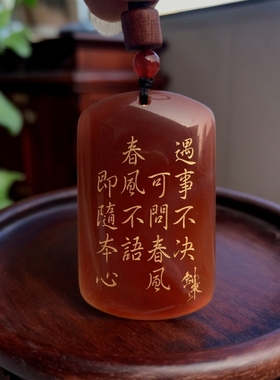 遇事不决
可問春風
春風不語
即隨本心